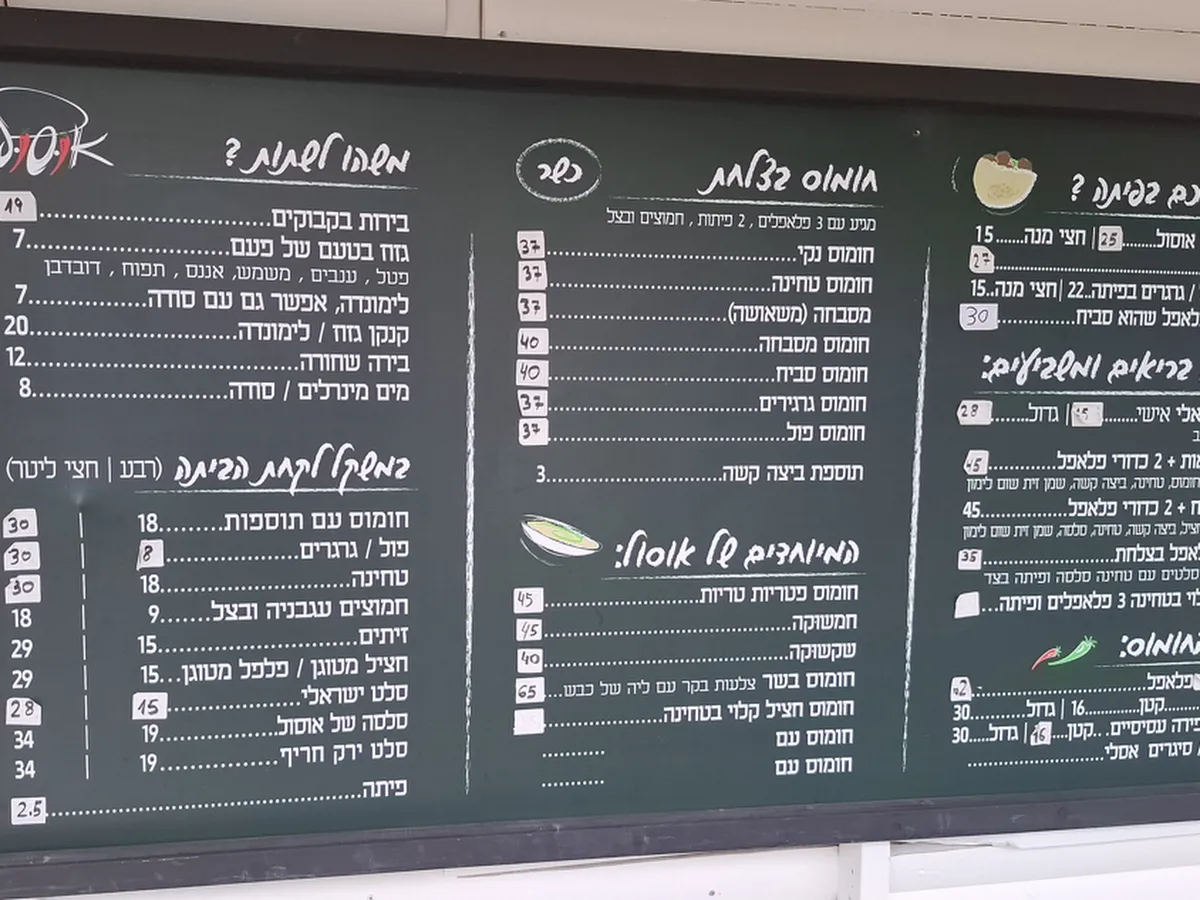 כם בפיתה ?
אוסול........25| חצי מנה......15
27
/ גרגרים בפיתה..22| חצי מנה..15
לאפל שהוא סביח............30
בריאים ומשביעים:
אלי אישי.........15| גדול......28
ב
אות + 2 כדורי פלאפל............45
חומוס, טחינה, ביצה קשה, שמן זית שום לימון
ח + 2 כדורי פלאפל..............45
חציל, ביצה קשה, טחינה, סלסה, שמן זית שום לימון
לאפל בצלחת....................35
סלטים עם טחינה סלסה ופיתה בצד
לוי בטחינה 3 פלאפלים ופיתה...
חומוס:
פלאפל.........................42
קטן.......16 | גדול.......30
פירה עסיסיים...קטן....16 | גדול...30
סיגרים אסלי....................
חומוס בצלחת
כשר
מגיע עם 3 פלאפלים , 2 פיתות , חמוצים ובצל
חומוס נקי..............................37
חומוס טחינה............................37
מסבחה (משאושה).......................37
חומוס מסבחה..........................40
חומוס סביח............................40
חומוס גרגירים..........................37
חומוס פול..............................37
תוספת ביצה קשה.......................3
המיוחדים של אוסול:
חומוס פטריות טריות...................45
חמשוקה..............................45
שקשוקה..............................40
חומוס בשר צלעות בקר עם ליה של כבש...65
חומוס חציל קלוי בטחינה..............
חומוס עם ..........
חומוס עם ..........
אוסול
משהו לשתות ?
בירות בקבוקים.........................19
גזוז בטעם של פעם.....................7
פטל , ענבים , משמש, אננס , תפוח , דובדבן
לימונדה, אפשר גם עם סודה............7
קנקן גזוז / לימונדה....................20
בירה שחורה...........................12
מים מינרלים / סודה...................8
במשקל לקחת הביתה (רבע | חצי ליטר)
חומוס עם תוספות.........18 | 30
פול / גרגרים..............8 | 30
טחינה....................18 | 30
חמוצים עגבניה ובצל.......9 | 18
זיתים....................15 | 29
חציל מטוגן / פלפל מטוגן...15 | 29
סלט ישראלי...............15 | 28
סלסה של אוסול...........19 | 34
סלט ירק חריף.............19 | 34
פיתה.....................2.5